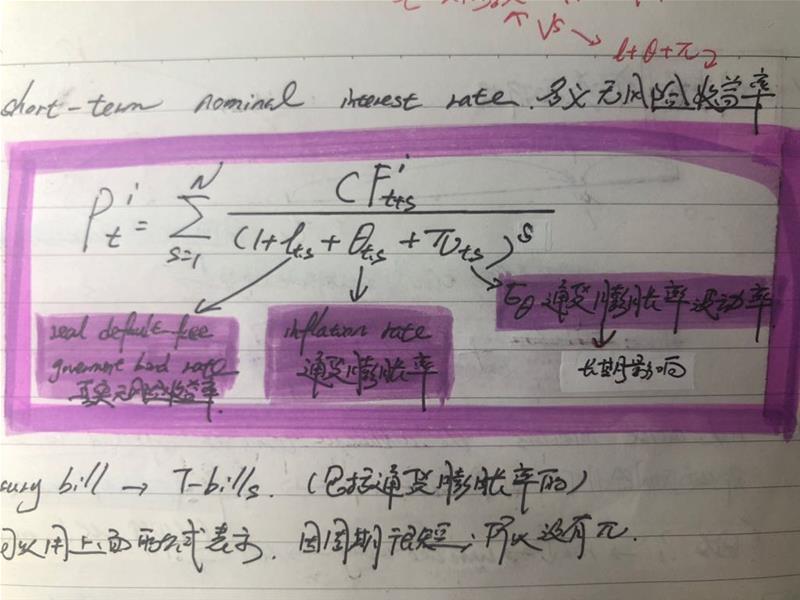 vs
l+θ+π
short-term nominal interest rate. 名义无风险收益率
P_t^i = Σ_{s=1}^{N} CF_{t+s}^i / (1+l_{t,s}+θ_{t,s}+π_{t,s})^s
σ_θ 通货膨胀率波动率
real default-free
government bond rate
真实无风险收益率
inflation rate
通货膨胀率
长期影响
sury bill → T-bills. (包括通货膨胀率的)
可以用上面的公式表示. 因周期很短, 所以没有π.